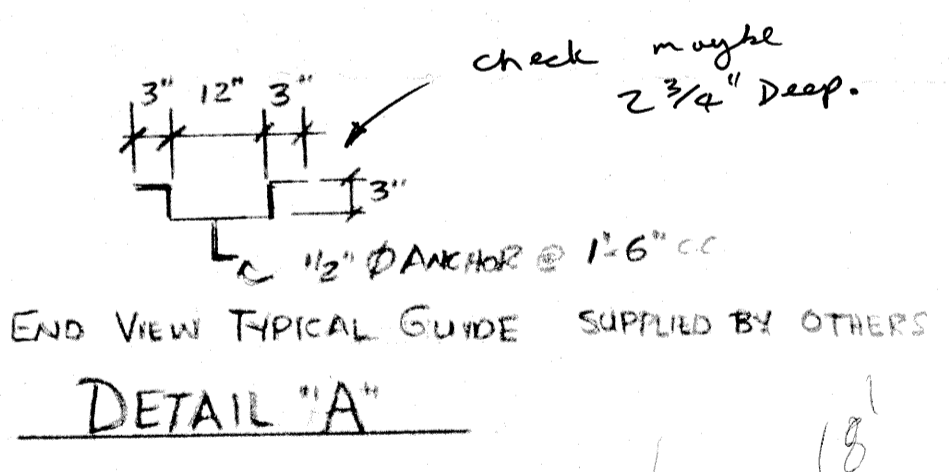 check maybe
2 3/4" Deep.
3" 12" 3"
3"
1/2" Ø ANCHOR @ 1'-6" C.C
END VIEW TYPICAL GUIDE SUPPLIED BY OTHERS
DETAIL "A"
18'